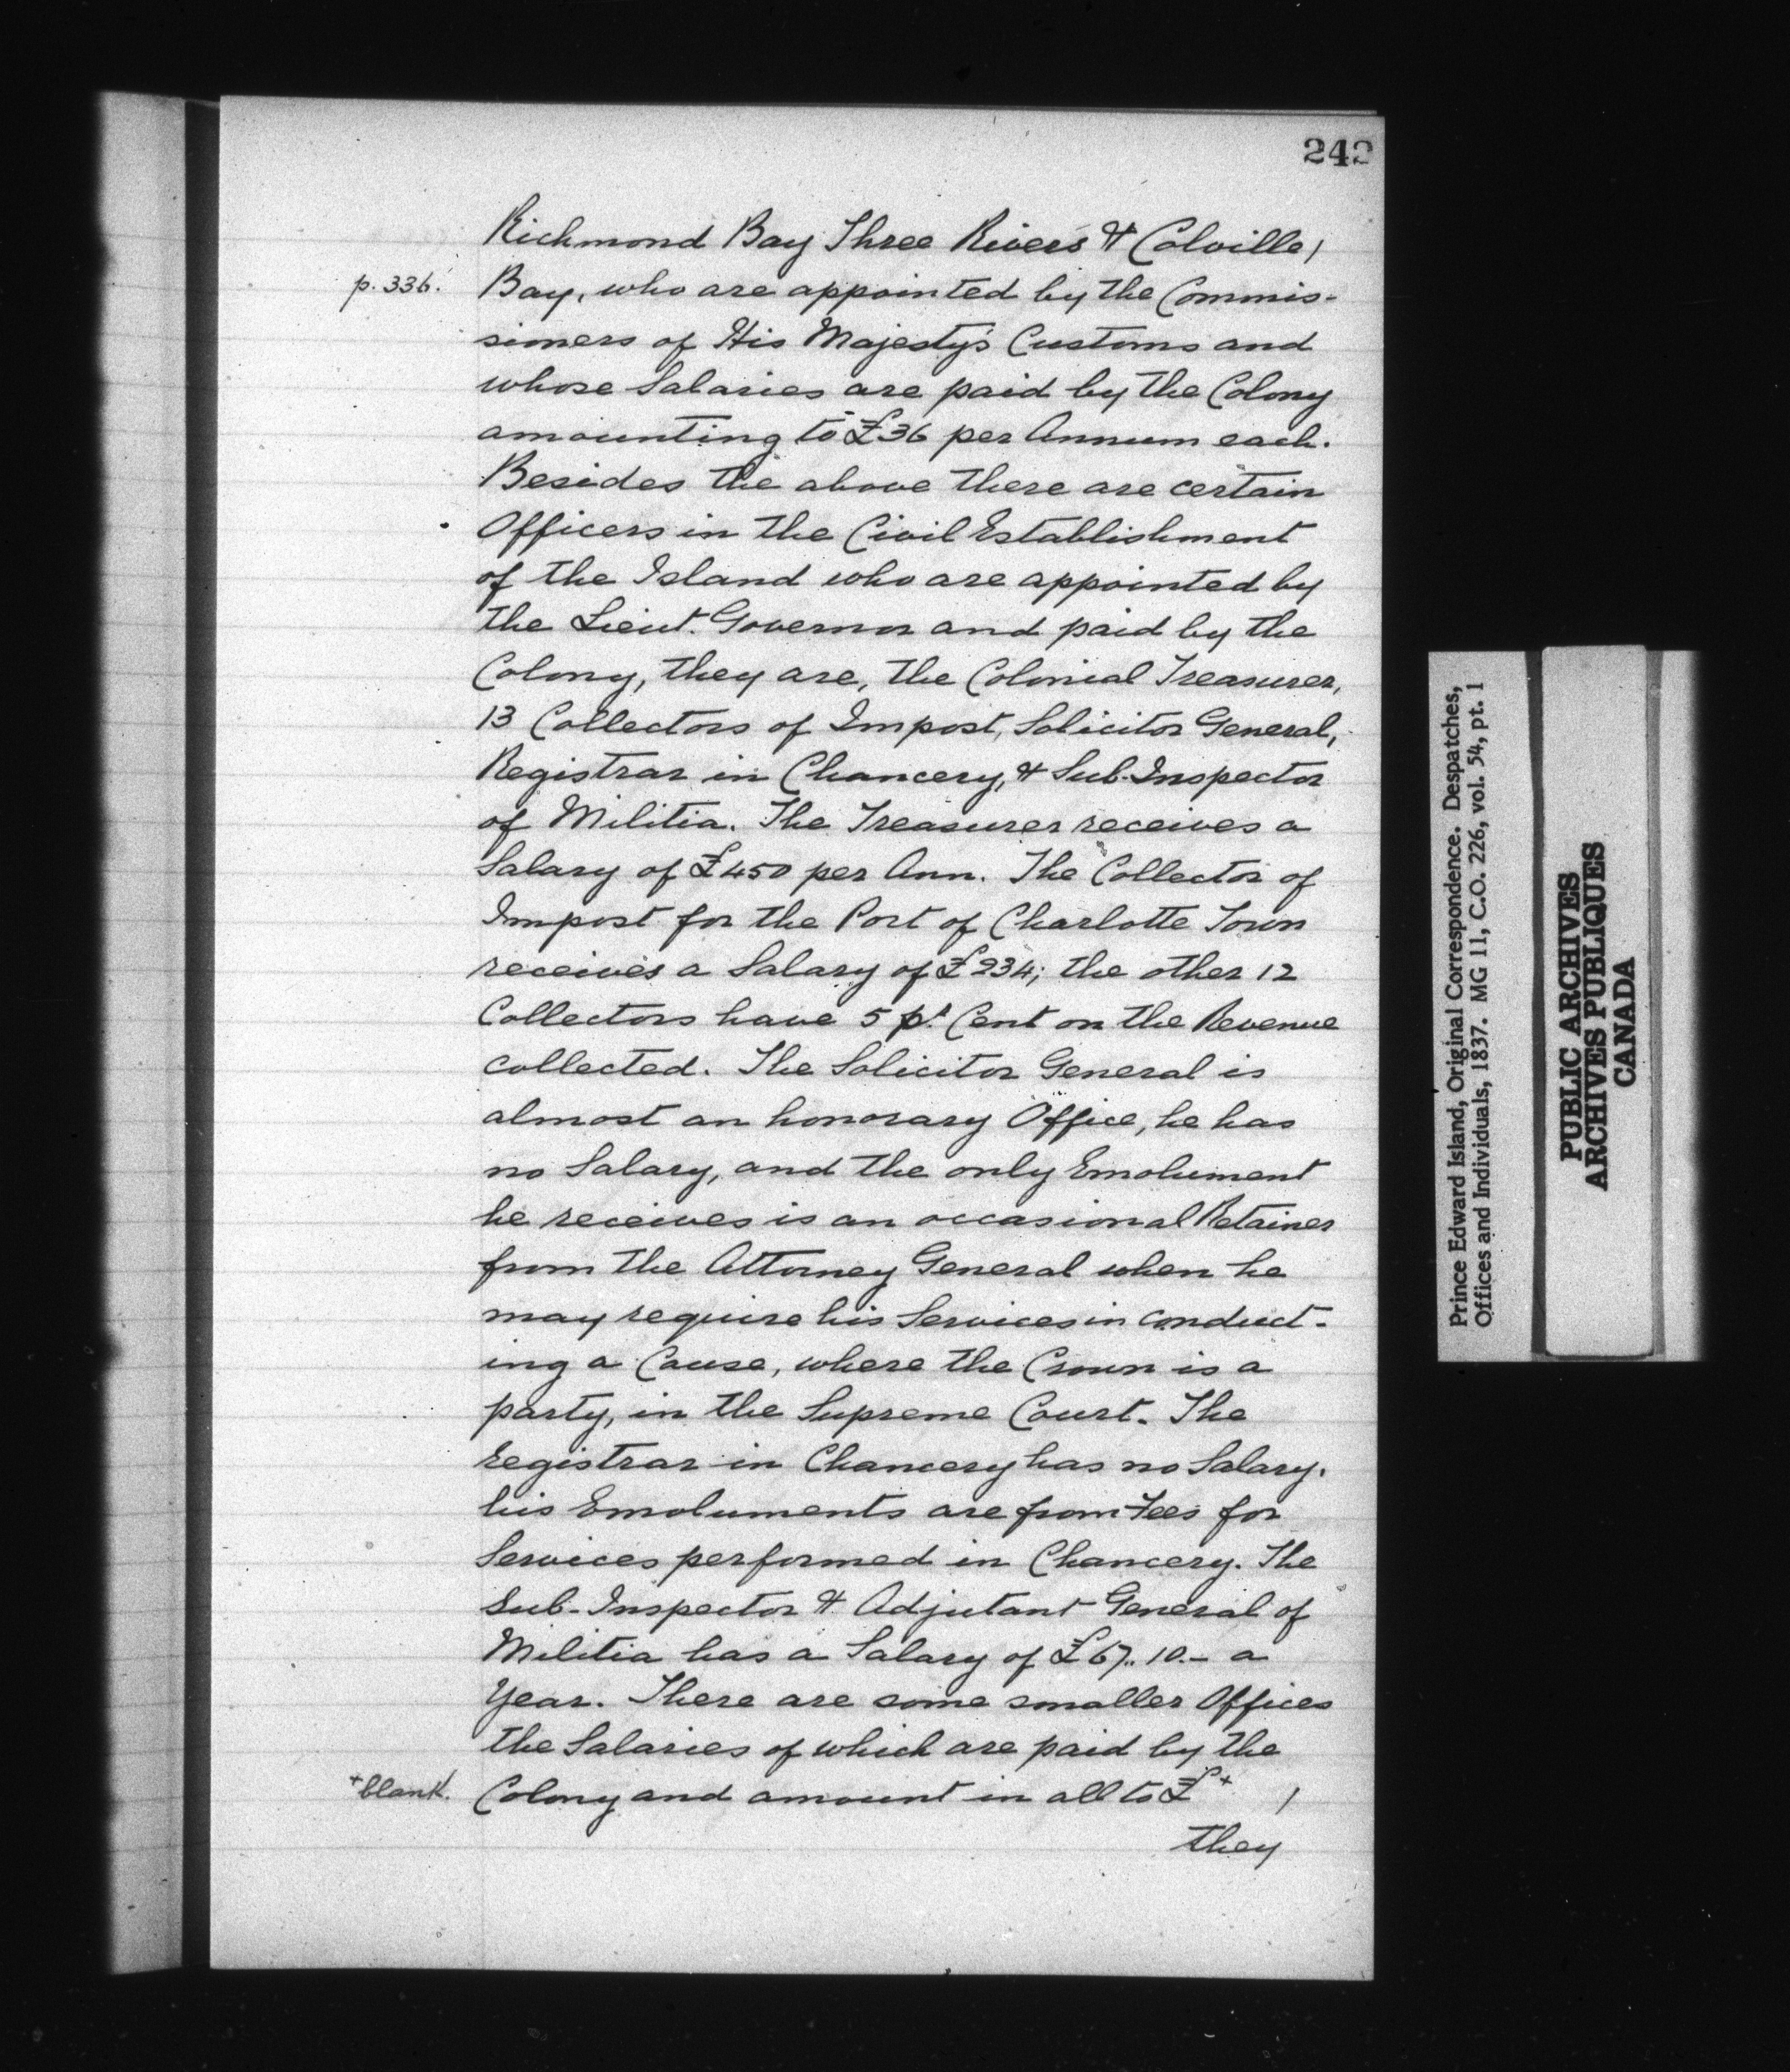 242
Richmond Bay Three Rivers & Colville /
p. 336. Bay, who are appointed by the Commis-
sioners of His Majesty's Customs and
whose Salaries are paid by the Colony
amounting to £36 per Annum each.
Besides the above there are certain
Officers in the Civil Establishment
of the Island who are appointed by
the Lieut. Governor and paid by the
Colony, they are, the Colonial Treasurer,
13 Collectors of Impost, Solicitor General,
Registrar in Chancery, & Sub-Inspector
of Militia. The Treasurer receives a
Salary of £450 per Ann. The Collector of
Impost for the Port of Charlotte Town
receives a Salary of £234; the other 12
Collectors have 5 pr. Cent on the Revenue
collected. The Solicitor General is
almost an honorary Office, he has
no Salary, and the only Emolument
he receives is an occasional Retainer
from the Attorney General when he
may require his Services in conduct-
ing a Cause, where the Crown is a
party, in the Supreme Court. The
Registrar in Chancery has no Salary,
his Emoluments are from Fees for
Services performed in Chancery. The
Sub-Inspector & Adjutant General of
Militia has a Salary of £67..10.- a
Year. There are some smaller Offices
the Salaries of which are paid by the
+blank. Colony and amount in all to £+ /
they
Prince Edward Island, Original Correspondence. Despatches,
Offices and Individuals, 1837. MG 11, C.O. 226, vol. 54, pt. 1
PUBLIC ARCHIVES
ARCHIVES PUBLIQUES
CANADA